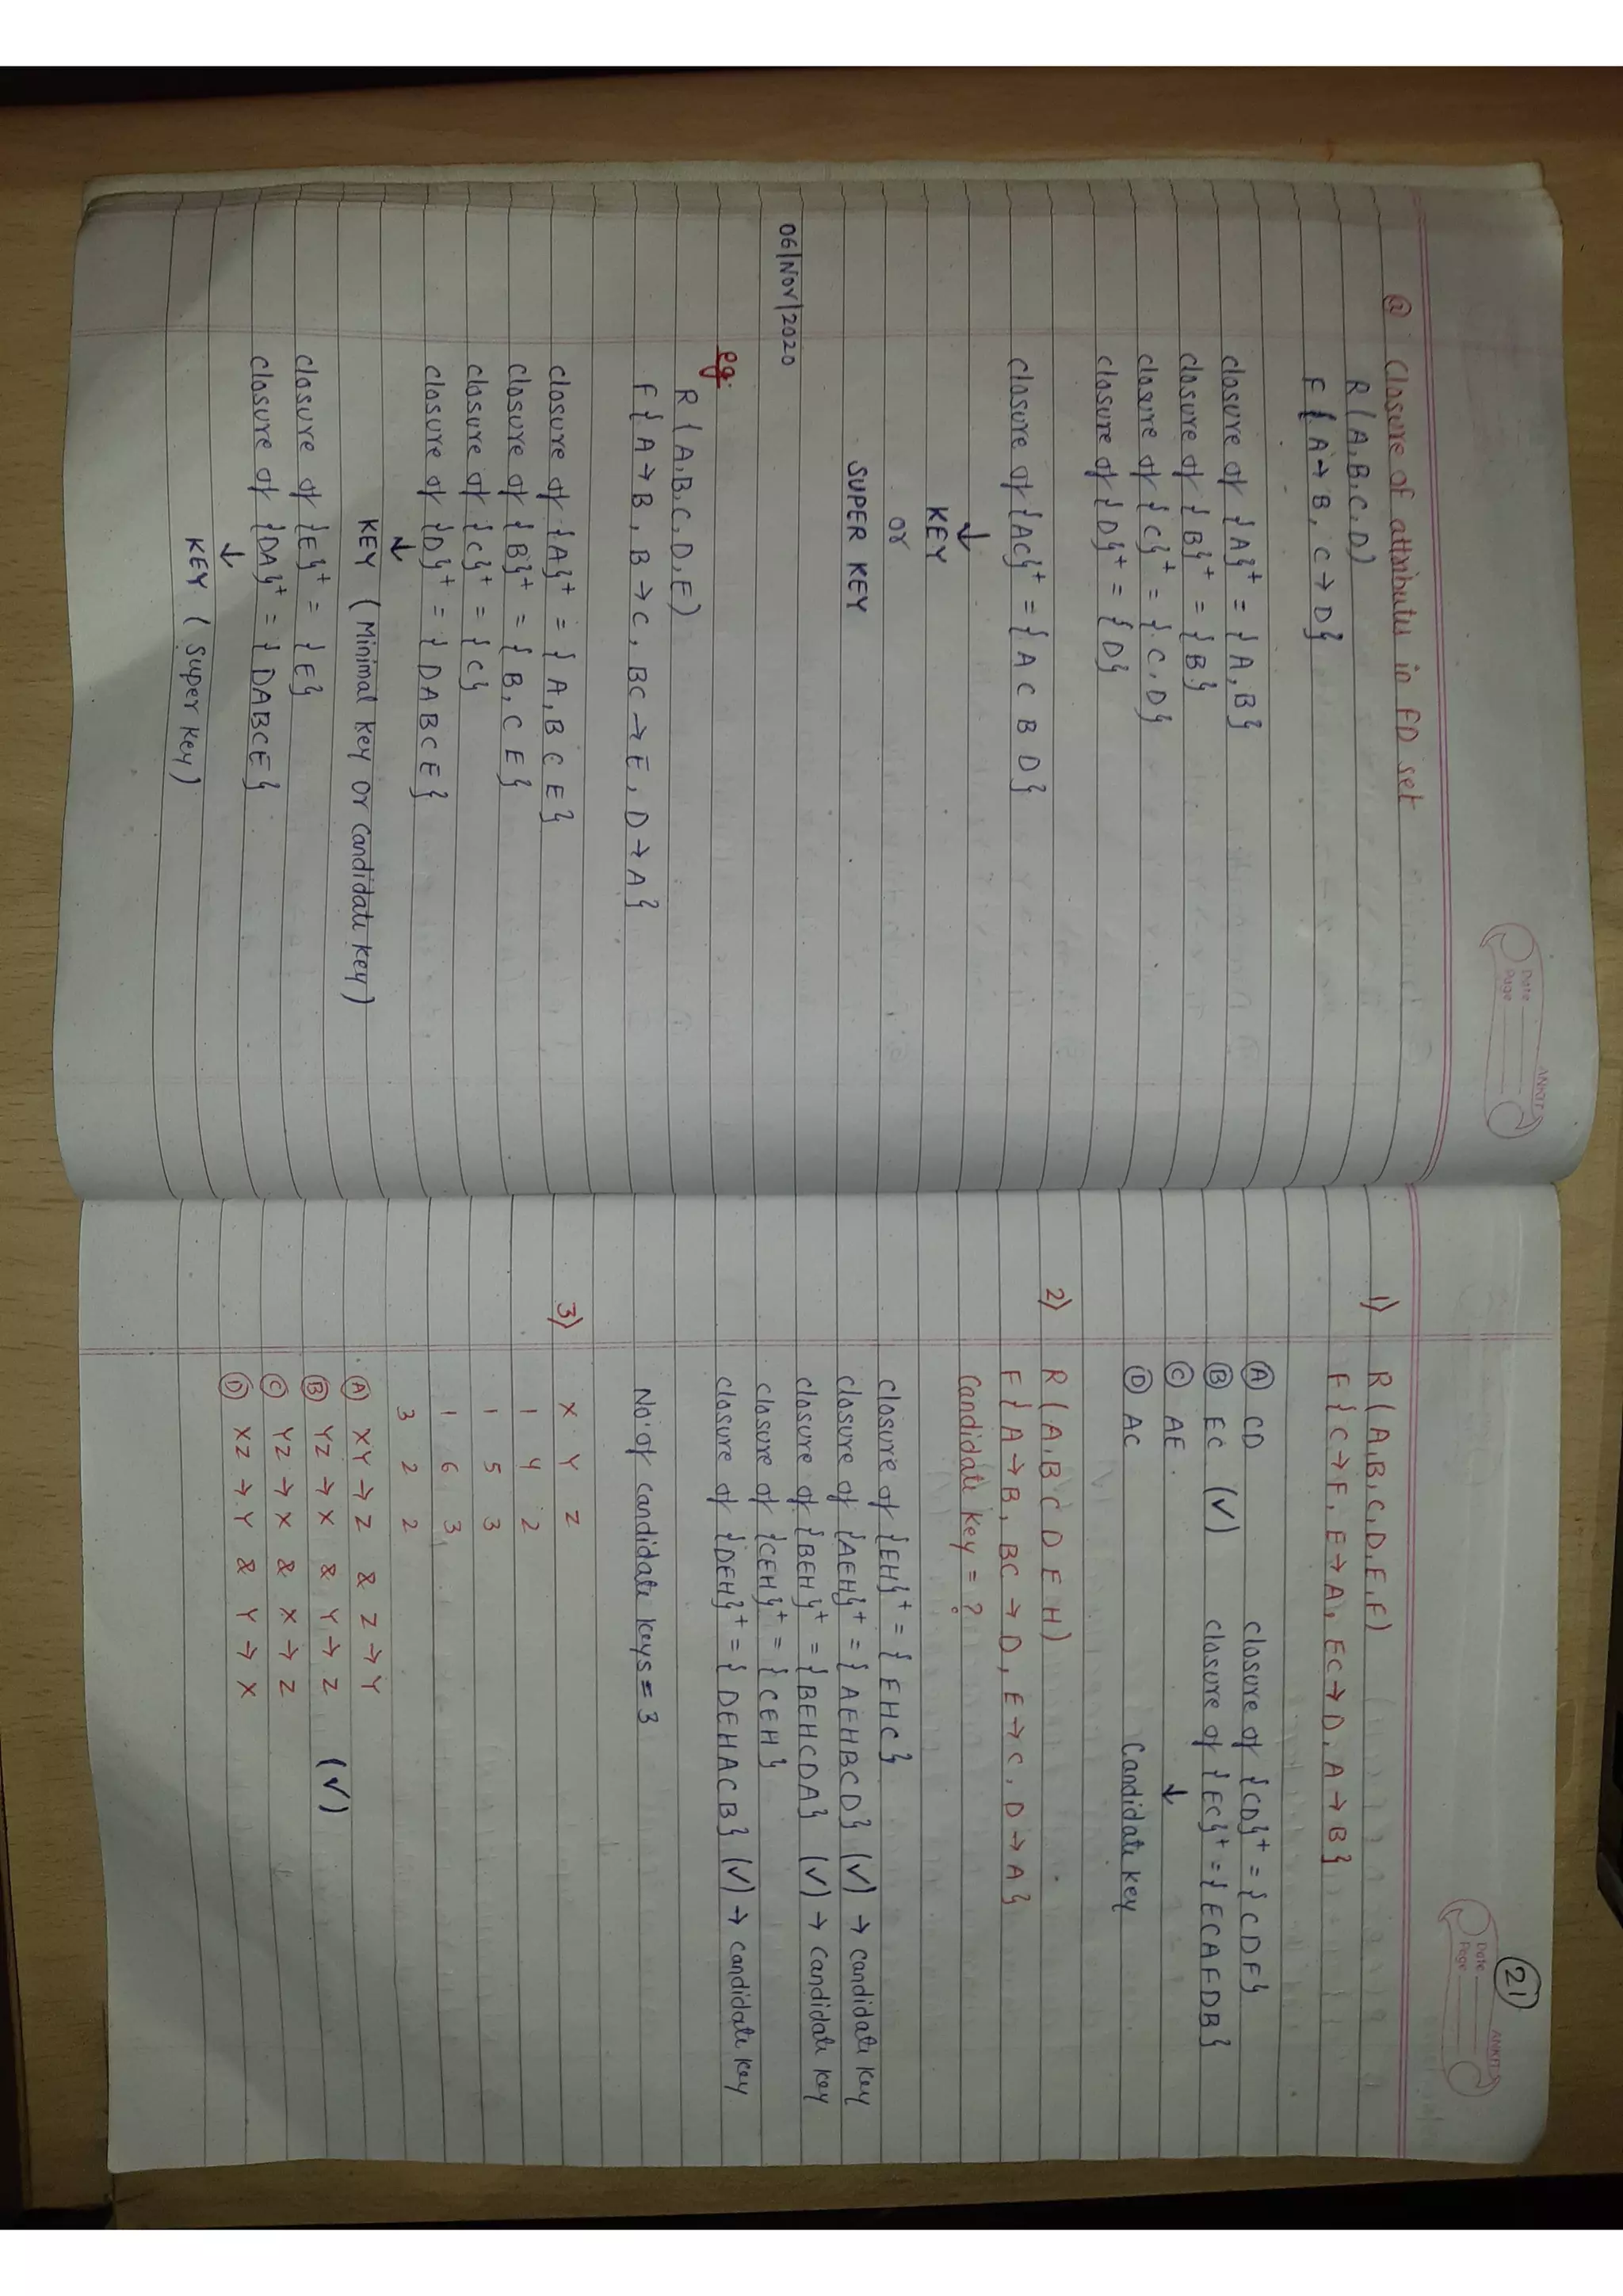 Date
Page
ANKIT
@ Closure of attributes in FD set
R(A,B,C,D)
F{A→B, C→D}
closure of {A}+ = {A,B}
closure of {B}+ = {B}
closure of {C}+ = {C,D}
closure of {D}+ = {D}
closure of {AC}+ = {A C B D}
↓
KEY
or
SUPER KEY
06/Nov/2020
eg.
R(A,B,C,D,E)
F{A→B, B→C, BC→E, D→A}
closure of {A}+ = {A,B C E}
closure of {B}+ = {B,C E}
closure of {C}+ = {C}
closure of {D}+ = {DABCE}
↓
KEY (Minimal key or candidate key)
closure of {E}+ = {E}
closure of {DA}+ = {DABCE}
↓
KEY (Super key)
21
Date
Page
ANKIT
1) R(A,B,C,D,E,F)
F{C→F, E→A, EC→D, A→B}
Ⓐ CD closure of {CD}+ = {CDF}
Ⓑ EC (✓) closure of {EC}+ = {ECAFDB}
Ⓒ AE ↓
Ⓓ AC Candidate key
2) R(A,B C D E H)
F{A→B, BC→D, E→C, D→A}
Candidate key = ?
closure of {EH}+ = {EHC}
closure of {AEH}+ = {AEHBCD} (✓) → candidate key
closure of {BEH}+ = {BEHCDA} (✓) → candidate key
closure of {CEH}+ = {CEH}
closure of {DEH}+ = {DEHACB} (✓) → candidate key
No. of candidate keys = 3
3) X Y Z
1 4 2
1 5 3
1 6 3
3 2 2
Ⓐ XY → Z & Z → Y
Ⓑ YZ → X & Y → Z (✓)
Ⓒ YZ → X & X → Z
Ⓓ XZ → Y & Y → X